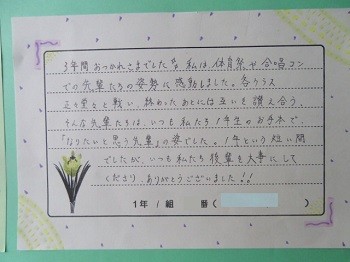 3年間おつかれさまでした!! 私は、体育祭や合唱コン
での先輩たちの姿勢に感動しました。各クラス
正々堂々と戦い、終わったあとには互いを讃え合う、
そんな先輩たちは、いつも私たち1年生のお手本で、
「なりたいと思う先輩」の姿でした。1年という短い間
でしたが、いつも私たち後輩を大事にして
くださり、ありがとうございました!!
1年 1組 番( )